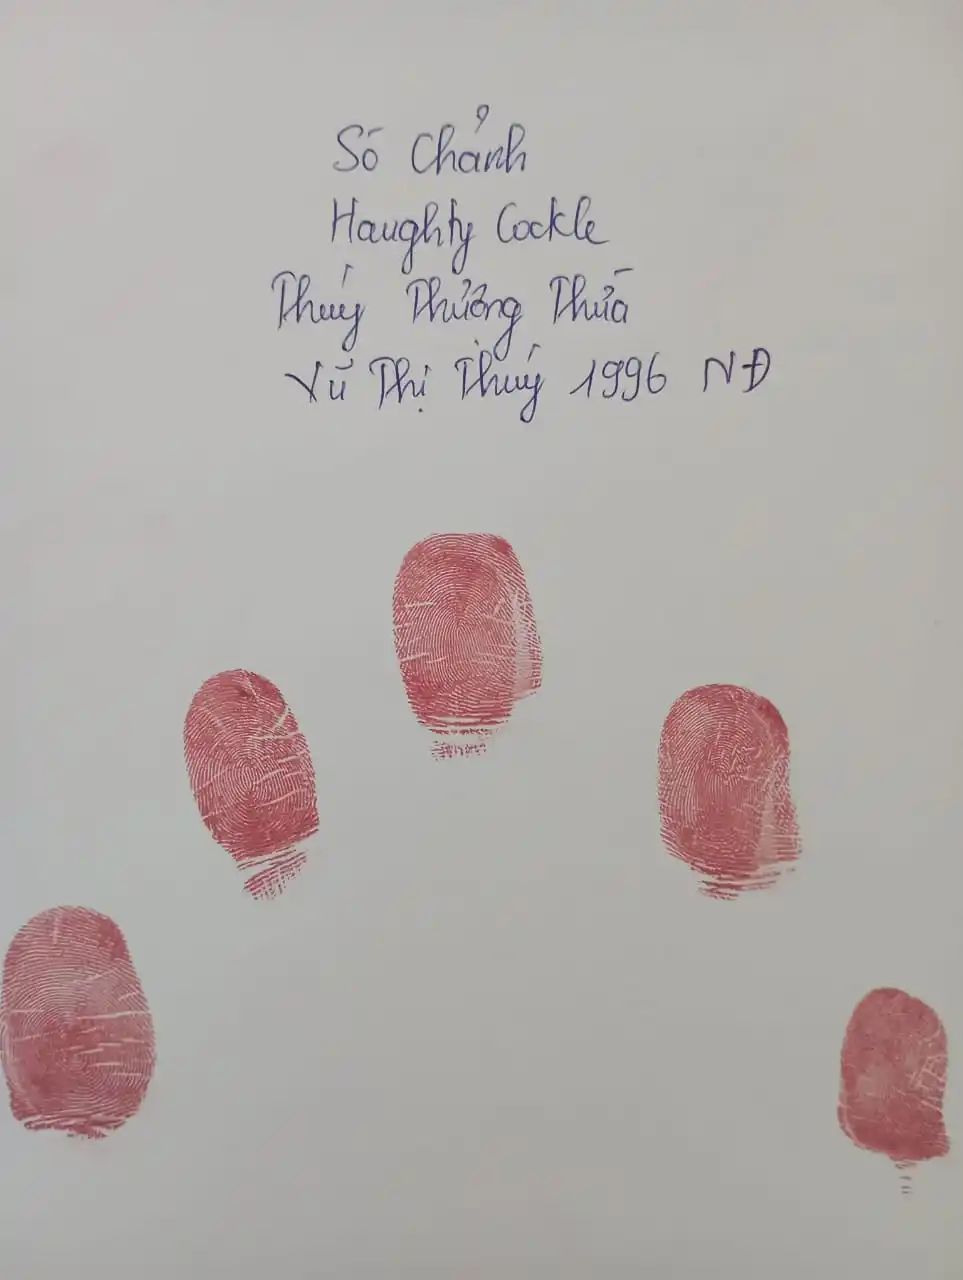 Sò Chảnh
Haughty Cockle
Thúy Thưởng Thừa
Vũ Thị Thúy 1996 NĐ